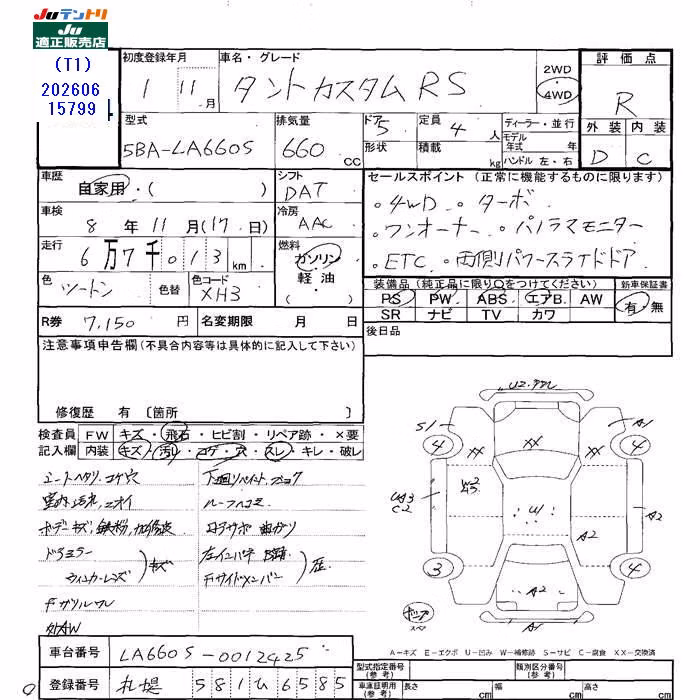 JUテントリ
JU
適正販売店
(T1)
202606
15799
初度登録年月
1 11月
車名・グレード
タントカスタムRS
2WD
・
4WD
評価点
R
外装 内装
D C
型式
5BA-LA660S
排気量
660 cc
ドア 5
形状
定員 4 人
積載 kg
ディーラー・並行
モデル年式 年式
ハンドル 左・右
車歴
自家用・( )
シフト
DAT
車検
8年11月(17日)
冷房
AAC
走行
6万7千013km
燃料
ガソリン
軽油
( )
色
ツートン
色替
色コード
XH3
R券 7,150円
名変期限 月 日
セールスポイント(正常に機能するものに限ります)
。4WD 。ターボ
。ワンオーナー 。パノラマモニター
。ETC 。両側パワースライドドア
装備品(純正品に限り○をつけてください)
新車保証書
PS PW ABS エアB AW
SR ナビ TV カワ
有・無
後日品
注意事項申告欄(不具合内容等は具体的に記入して下さい)
修復歴 有〔箇所 〕
検査員 FW キズ・飛石・ヒビ割・リペア跡・×要
記入欄 内装 キズ・汚れ・コゲ・穴・スレ・キレ・破レ
シートヘタリ、コゲ穴
室内汚れ、ニオイ
ボデーキズ、鉄粉、
ドアミラー
ウィンカーレンズ
キズ
Fグリルワレ
外AW
ルーフヘコミ
コアサポ 曲ガリ
左インパネ
Fサイドメンバー
歴
U2
S1
A1
4
4
XX
XX
XX
W2
U
A2
A2
C2
A2
3
4
A1
A-キズ E-エクボ U-凹み W-補修跡 S-サビ C-腐食 XX-交換済
車台番号 LA660S-0012425
登録番号 札幌 581ひ6585
型式指定番号(参考)
類別区分番号(参考)
車庫証明用(参考) 長さ cm 幅 cm 高さ cm